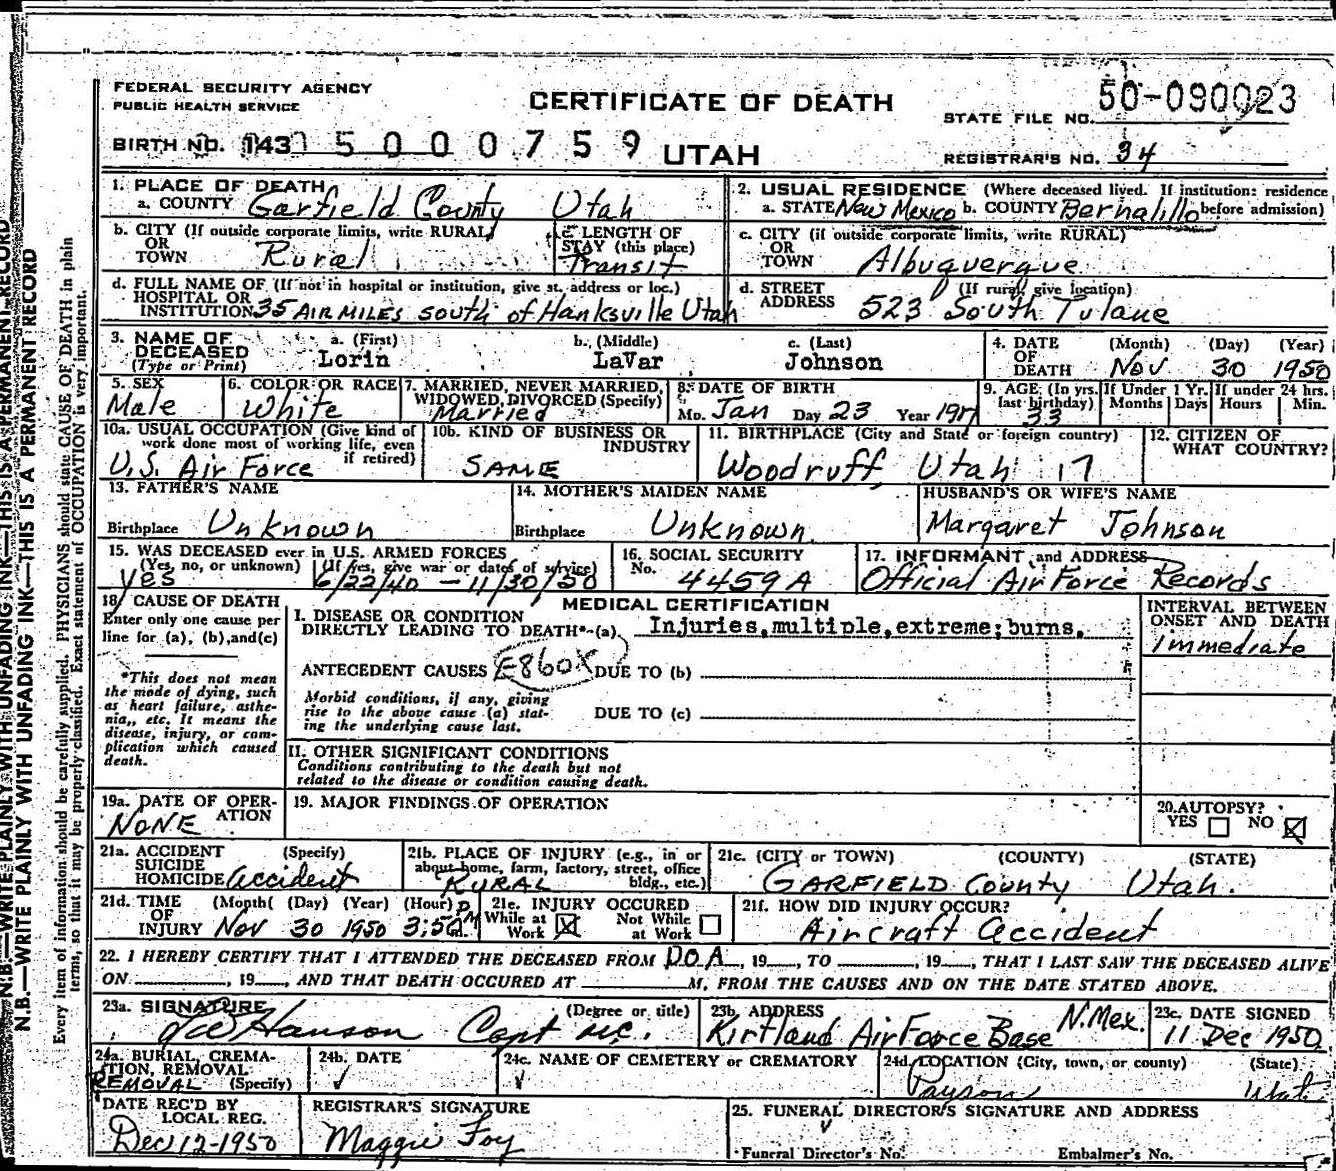 FEDERAL SECURITY AGENCY
PUBLIC HEALTH SERVICE
CERTIFICATE OF DEATH
STATE FILE NO. 50-090023
BIRTH NO. 143 5000759 UTAH
REGISTRAR'S NO. 34
1. PLACE OF DEATH
a. COUNTY Garfield County Utah
2. USUAL RESIDENCE (Where deceased lived. If institution: residence
a. STATE New Mexico b. COUNTY Bernalillo before admission)
b. CITY (If outside corporate limits, write RURAL)
OR
TOWN Rural
c. LENGTH OF
STAY (this place)
Transit
c. CITY (if outside corporate limits, write RURAL)
OR
TOWN Albuquerque
d. FULL NAME OF (If not in hospital or institution, give st. address or loc.)
HOSPITAL OR
INSTITUTION 35 AIR MILES south of Hanksville Utah
d. STREET (If rural, give location)
ADDRESS 523 South Tulane
3. NAME OF
DECEASED
(Type or Print)
a. (First)
Lorin
b. (Middle)
LaVar
c. (Last)
Johnson
4. DATE (Month) (Day) (Year)
OF
DEATH Nov 30 1950
5. SEX
Male
6. COLOR OR RACE
White
7. MARRIED, NEVER MARRIED,
WIDOWED, DIVORCED (Specify)
Married
8. DATE OF BIRTH
Mo. Jan Day 23 Year 1917
9. AGE (In yrs.
last birthday)
33
If Under 1 Yr.
Months Days
If under 24 hrs.
Hours Min.
10a. USUAL OCCUPATION (Give kind of
work done most of working life, even
if retired)
U.S. Air Force
10b. KIND OF BUSINESS OR
INDUSTRY
SAME
11. BIRTHPLACE (City and State or foreign country)
Woodruff, Utah 17
12. CITIZEN OF
WHAT COUNTRY?
13. FATHER'S NAME
Birthplace Unknown
14. MOTHER'S MAIDEN NAME
Birthplace Unknown
HUSBAND'S OR WIFE'S NAME
Margaret Johnson
15. WAS DECEASED ever in U.S. ARMED FORCES
(Yes, no, or unknown) (If yes, give war or dates of service)
yes 6/22/40 - 11/30/50
16. SOCIAL SECURITY
No. 4459A
17. INFORMANT and ADDRESS
Official Air Force Records
18. CAUSE OF DEATH
Enter only one cause per
line for (a), (b), and (c)
*This does not mean
the mode of dying, such
as heart failure, asthe-
nia, etc. It means the
disease, injury, or com-
plication which caused
death.
MEDICAL CERTIFICATION
I. DISEASE OR CONDITION
DIRECTLY LEADING TO DEATH*-(a) Injuries, multiple, extreme; burns.
ANTECEDENT CAUSES E860X DUE TO (b)
Morbid conditions, if any, giving
rise to the above cause (a) stat-
ing the underlying cause last.
DUE TO (c)
II. OTHER SIGNIFICANT CONDITIONS
Conditions contributing to the death but not
related to the disease or condition causing death.
INTERVAL BETWEEN
ONSET AND DEATH
immediate
19a. DATE OF OPER-
ATION
NONE
19. MAJOR FINDINGS OF OPERATION
20. AUTOPSY?
YES NO
21a. ACCIDENT (Specify)
SUICIDE
HOMICIDE accident
21b. PLACE OF INJURY (e.g., in or
about home, farm, factory, street, office
bldg., etc.)
RURAL
21c. (CITY or TOWN) (COUNTY) (STATE)
GARFIELD County Utah.
21d. TIME (Month) (Day) (Year) (Hour)
OF
INJURY Nov 30 1950 3:50 PM
21e. INJURY OCCURED
While at Work Not While at Work
21f. HOW DID INJURY OCCUR?
Aircraft accident
22. I HEREBY CERTIFY THAT I ATTENDED THE DECEASED FROM D.O.A, 19, TO , 19, THAT I LAST SAW THE DECEASED ALIVE
ON , 19, AND THAT DEATH OCCURED AT M, FROM THE CAUSES AND ON THE DATE STATED ABOVE.
23a. SIGNATURE (Degree or title)
Hanson Capt MC.
23b. ADDRESS
Kirtland Air Force Base N. Mex.
23c. DATE SIGNED
11 Dec 1950
24a. BURIAL, CREMA-
TION, REMOVAL
REMOVAL (Specify)
24b. DATE
24c. NAME OF CEMETERY or CREMATORY
24d. LOCATION (City, town, or county) (State)
Payson Utah
DATE REC'D BY
LOCAL REG.
Dec 12-1950
REGISTRAR'S SIGNATURE
Maggie Foy
25. FUNERAL DIRECTOR'S SIGNATURE AND ADDRESS
Funeral Director's No. Embalmer's No.
N.B.—WRITE PLAINLY WITH UNFADING INK—THIS IS A PERMANENT RECORD
N.B.—WRITE PLAINLY WITH UNFADING INK—THIS IS A PERMANENT RECORD
Every item of information should be carefully supplied. PHYSICIANS should state CAUSE OF DEATH in plain
terms, so that it may be properly classified. Exact statement of OCCUPATION is very important.